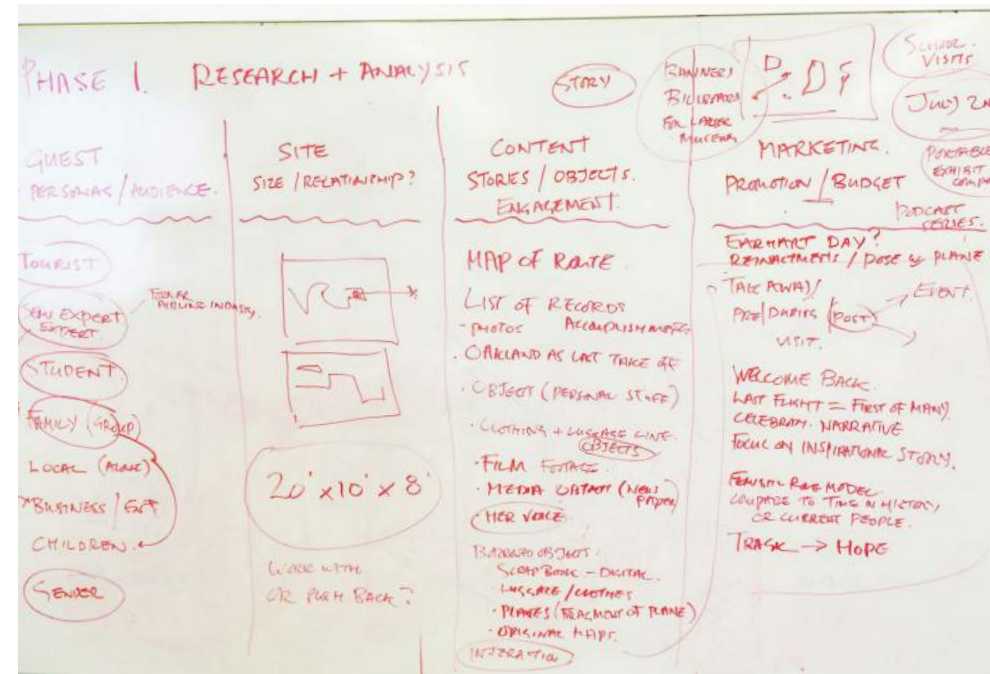 PHASE 1. RESEARCH + ANALYSIS
STORY
BANNERS
BILLBOARDS
FOR LARGER
MUSEUM
D. D
SCHOOL
VISITS
JULY 2N
PORTABLE
EXHIBIT
PODCAST
SERIES.
GUEST
PERSONAS / AUDIENCE.
TOURIST
SEMI EXPERT
EXPERT.
AIRLINE INDUSTRY.
STUDENT
FAMILY (GROUP)
LOCAL (ALONE)
BUSINESS /
CHILDREN.
GENDER
SITE
SIZE / RELATIONSHIP?
20' x 10' x 8'
WORK WITH
OR PUSH BACK?
CONTENT
STORIES / OBJECTS.
ENGAGEMENT.
MAP OF ROUTE.
LIST OF RECORDS
- PHOTOS ACCOMPLISHMENTS
. OAKLAND AS LAST TAKE OFF
. OBJECTS (PERSONAL STUFF)
. CLOTHING + LUGGAGE LINE.
OBJECTS
. FILM FOOTAGE.
. MEDIA (NEWS
PAPER)
HER VOICE.
OBJECTS:
SCRAPBOOK - DIGITAL.
. LUGGAGE / CLOTHES
. PLANES (FRAGMENT OF PLANE)
. ORIGINAL MAPS.
MARKETING.
PROMOTION / BUDGET
EARHART DAY?
/ POSE W PLANE
TAKE AWAY /
PRE / DURING (POST) EVENT.
VISIT.
WELCOME BACK.
LAST FLIGHT = FIRST OF MANY.
NARRATIVE
FOCUS ON INSPIRATIONAL STORY.
ROLE MODEL.
COMPARE TO TIME IN HISTORY
OR CURRENT PEOPLE.
→ HOPE